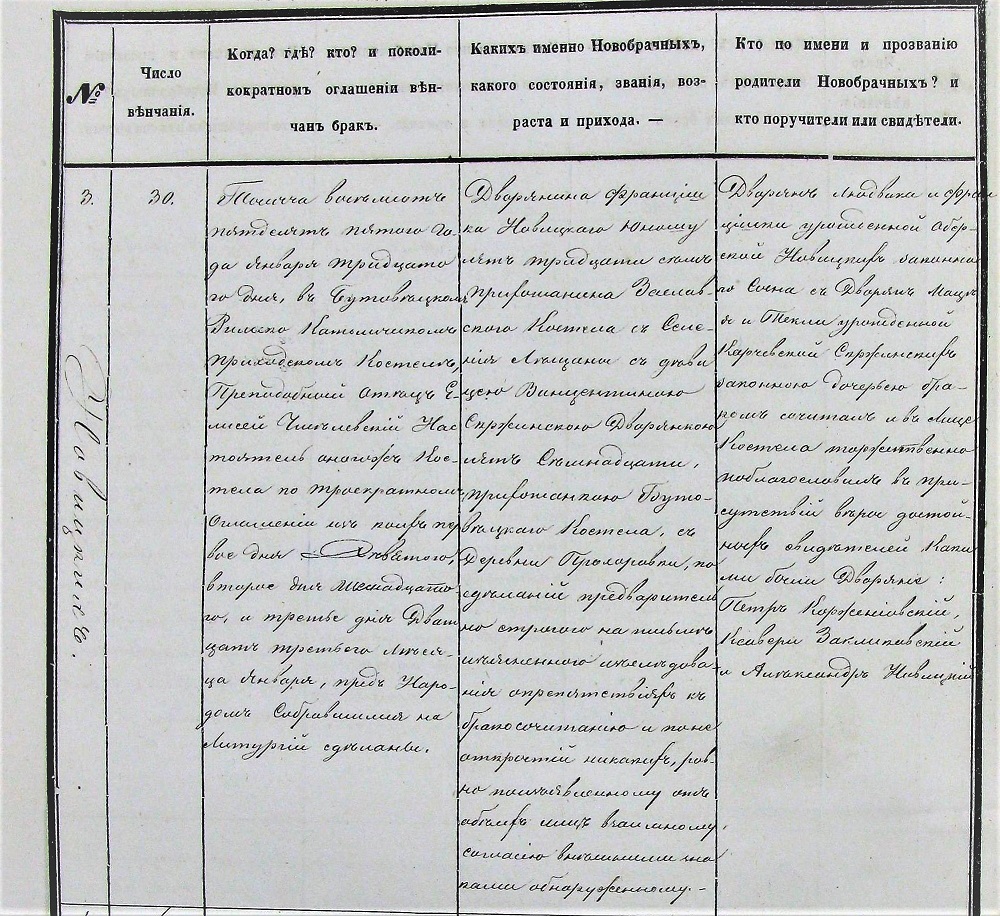 №
Число
вѣнчанія.
Когда? гдѣ? кто? и поколи-
кократномъ оглашеніи вѣн-
чанъ бракъ.
Какихъ именно Новобрачныхъ,
какого состоянія, званія, воз-
раста и прихода. —
Кто по имени и прозванію
родители Новобрачныхъ? и
кто поручители или свидѣтели.
3.
Новицкихъ.
30.
Тысяча восемьсотъ
пятдесятъ пятого го-
да Января тридцато
го дня, въ Бутовецкомъ
Римско Католическомъ
приходскомъ Костелѣ,
Преподобный Отецъ Е-
лисей Нас-
тоятель оногожъ Кос-
тела по троекратномъ
Оглашеніи ихъ пер
вое дня девятого,
второе дня шеснадцато-
го, и третье дня Двад
цать третьего мѣся-
ца Января, предъ Наро-
домъ Собравшимся на
Литургій сдѣланы.
Дворянина Францыш
ка Новицкаго Юношу
лѣтъ тридцати семь
прихожанина Заслав-
ского Костела съ Селе-
нія съ дѣви
цею Винцентиною
Спржинскою Дворянкою
лѣтъ Семнадцати,
прихожанкою Буто-
вецкаго Костела, съ
Деревни по
сдѣланій предварителъ
но строгого на письмѣ
изъясненного изслѣдова-
нія опрепятствіяхъ къ
бракосочитанію и поне
открытій никакихъ, рав-
но поизъявленному отъ
обѣихъ лицъ взаимному,
согласію внѣшними зна
ками обнаруженному. -
Дворянъ Людвика и Фран
цишки урожденной
ской Новицкихъ законна
го Сына съ Дворянъ
я и Текли урожденной
Карчевской Спржинскихъ
законною дочерью бра-
комъ сочиталъ и въ Лице
Костела торжественно
поблагословилъ въ при-
сутствій вѣрос достой-
ныхъ свидѣтелей Каки
ми были Дворяне:
Петръ Корженіовскій,
Ксаверій Закликовскій
и Александръ Новицкій